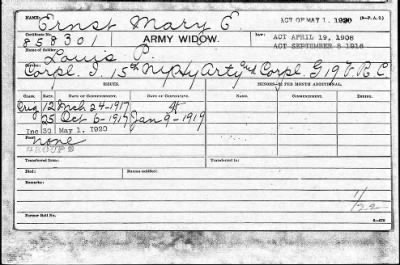 NAME: Ernst Mary E. ACT OF MAY 1, 1920 (3—P. A. 2)
Certificate No. 858301 ARMY WIDOW. Law: ACT APRIL 19, 1908
ACT SEPTEMBER 8 1916
Name of Soldier: Louis P.
Service: Corpl. I, 15th N.Y. Hy Arty and Corpl. G 19 V. R. C.
ISSUES. PER MONTH ADDITIONAL.
CLASS. RATE. DATE OF COMMENCEMENT. DATE OF CERTIFICATE. COMMENCING. ENDING.
Orig 12 Mch 24-1917
25 Oct 6-1917 Jan 9-1919
Inc 30 May 1, 1920
none
GROUP 3
Transferred from: Transferred to:
Died: Bureau notified:
Remarks:
1/22
Former Roll No.